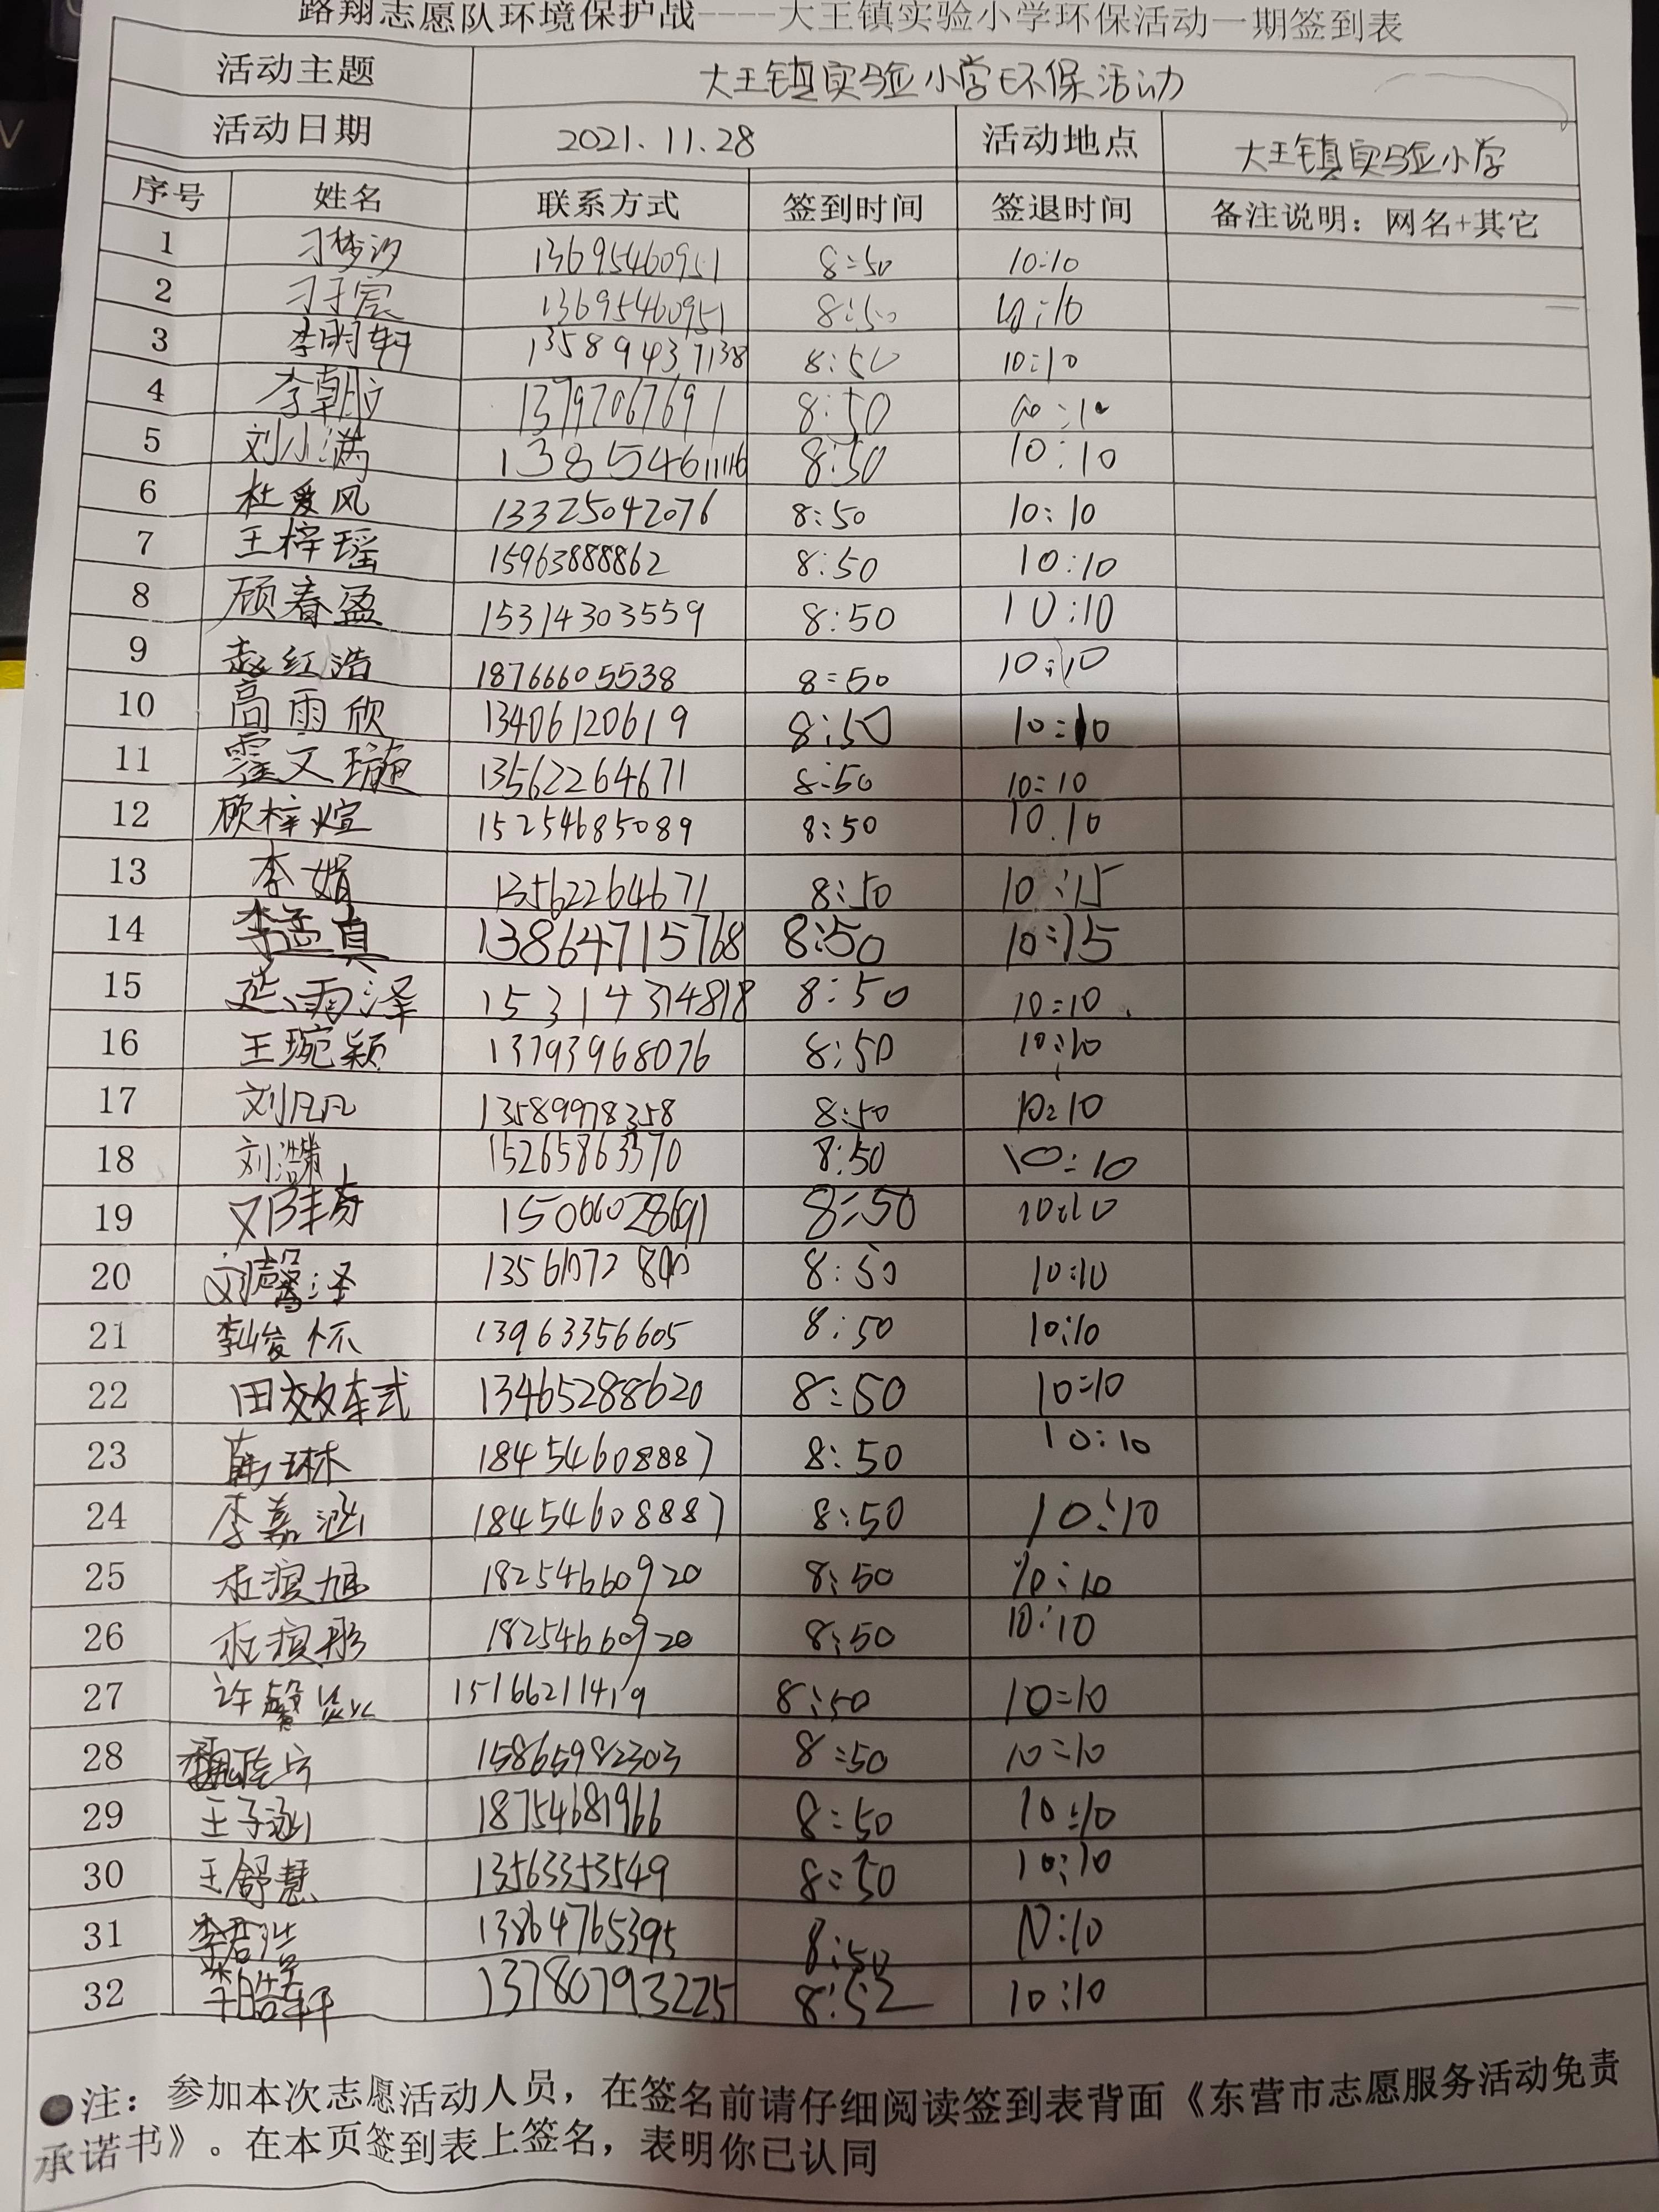 路翔志愿队环境保护战----大王镇实验小学环保活动一期签到表
活动主题 大王镇实验小学环保活动
活动日期 2021.11.28 活动地点 大王镇实验小学
序号 姓名 联系方式 签到时间 签退时间 备注说明：网名+其它
1 刁梦汐 13695460951 8:50 10:10
2 刁于宸 13695460951 8:50 10:10
3 李明轩 13589437138 8:50 10:10
4 李朝 13792067691 8:50 10:10
5 刘小满 13854611116 8:50 10:10
6 杜爱风 13325042076 8:50 10:10
7 王梓瑶 15963888862 8:50 10:10
8 顾春盈 15314303559 8:50 10:10
9 赵红浩 18766605538 8:50 10:10
10 高雨欣 13406120619 8:50 10:10
11 霍文璇 13562264671 8:50 10:10
12 顾梓煊 15254685089 8:50 10:10
13 李娟 13562264671 8:50 10:15
14 李孟真 13864715768 8:50 10:15
15 延雨泽 15314314818 8:50 10:10
16 王琬颖 13793968076 8:50 10:10
17 刘凡凡 13589978358 8:50 10:10
18 刘 15265863370 8:50 10:10
19 8:50 10:10
20 刘馨泽 8:50 10:10
21 李俊怀 13963356605 8:50 10:10
22 田效车式 13465288620 8:50 10:10
23 韩琳 18454608887 8:50 10:10
24 李嘉涵 18454608887 8:50 10:10
25 杜滨旭 18254660920 8:50 10:10
26 杜滨彤 18254660920 8:50 10:10
27 许馨 15166211419 8:50 10:10
28 15865982303 8:50 10:10
29 王子涵 18754681966 8:50 10:10
30 王舒慧 13563353549 8:50 10:10
31 李君浩 13864765395 8:50 10:10
32 轩 13780793225 8:52 10:10
●注：参加本次志愿活动人员，在签名前请仔细阅读签到表背面《东营市志愿服务活动免责
承诺书》。在本页签到表上签名，表明你已认同